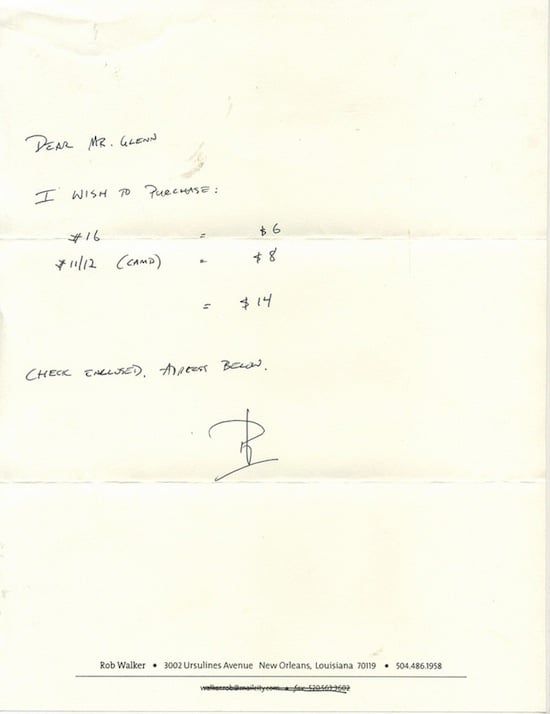 DEAR MR. GLENN
I WISH TO PURCHASE:
#16 = $6
#11/12 (CAMD) = $8
= $14
CHECK ENCLOSED. ADDRESS BELOW.
Rob Walker • 3002 Ursulines Avenue New Orleans, Louisiana 70119 • 504.486.1958
walkerrob@mailcity.com • fax 520.563.3602